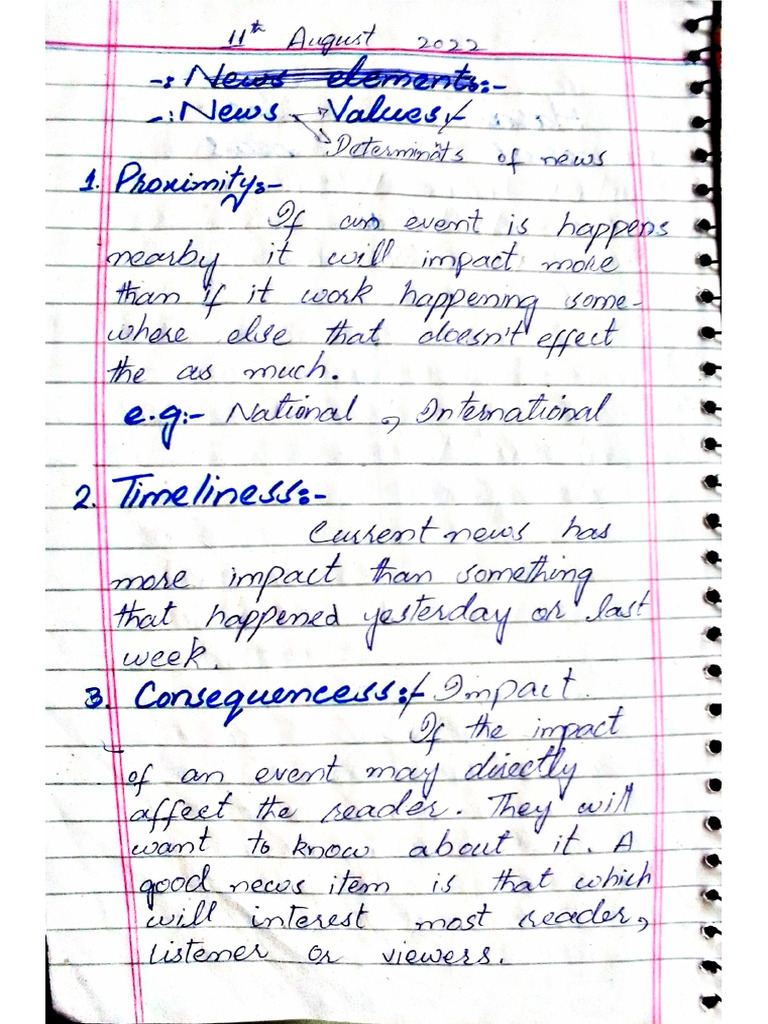 11th August 2022
-: News elements:-
-: News Values:-
Determinats of news
1. Proximity:-
If an event is happens
nearby it will impact more
than if it work happening some-
where else that doesn't effect
the as much.
e.g:- National, International
2. Timeliness:-
Current news has
more impact than something
that happened yesterday or last
week.
3. Consequencess:/- Impact.
If the impact
of an event may directly
affect the reader. They will
want to know about it. A
good news item is that which
will interest most reader,
listener or viewers.